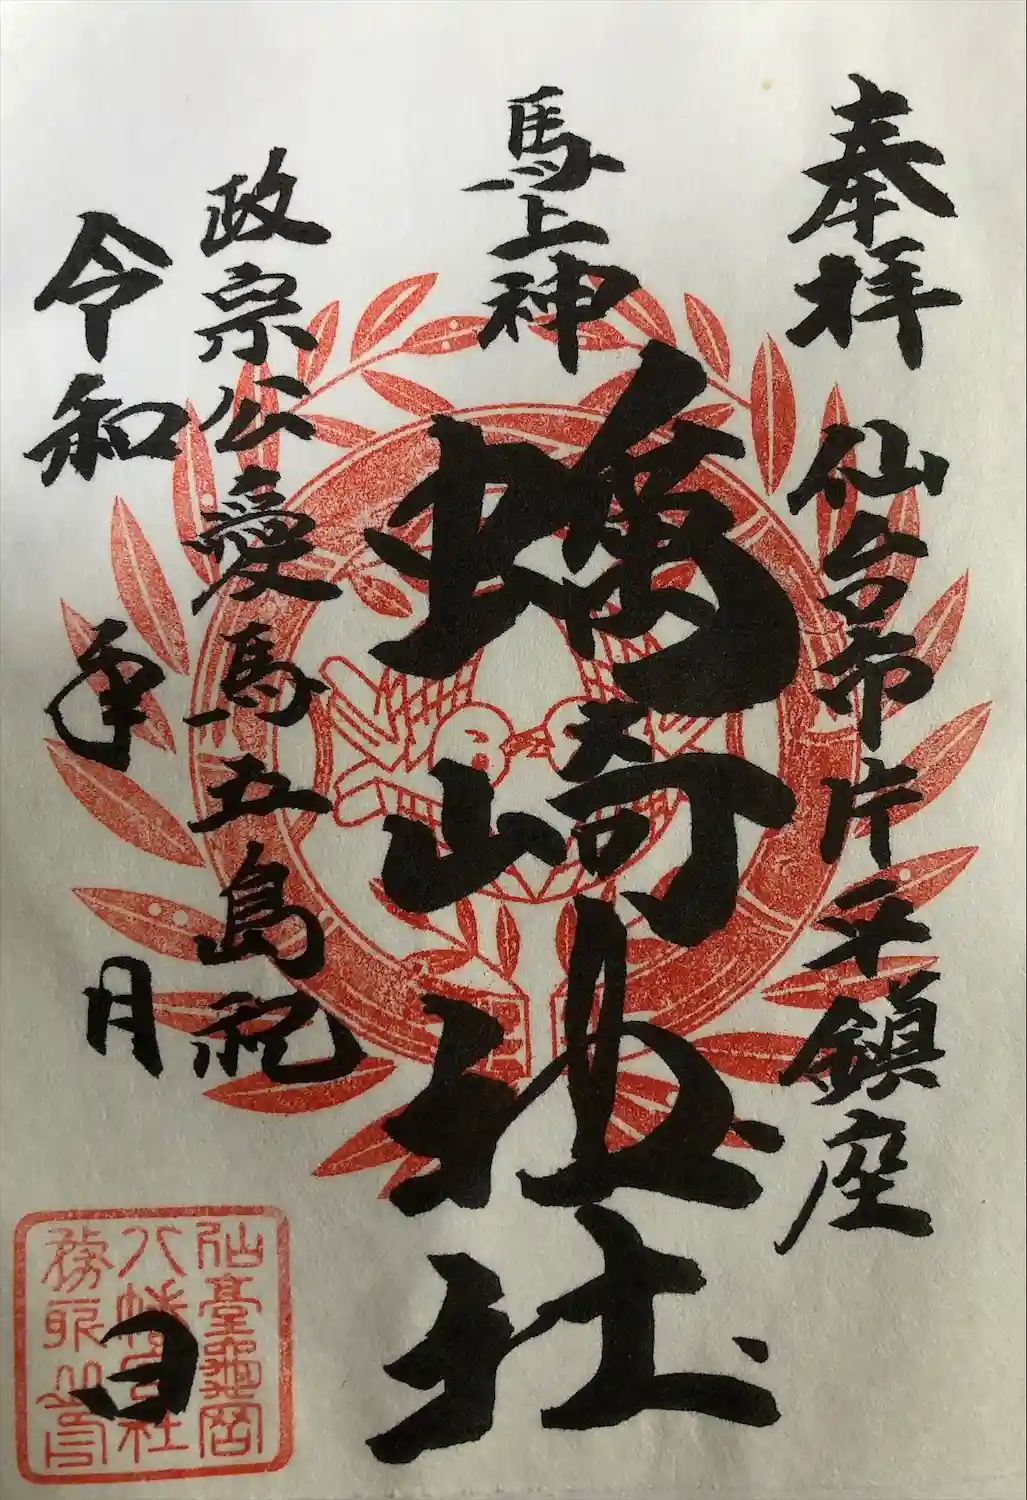 奉拝 仙台市片平鎮座
馬上神
蠣崎神社
政宗公愛馬五島祀
令和 年 月 日
仙臺龜岡
八幡神社
務所之印